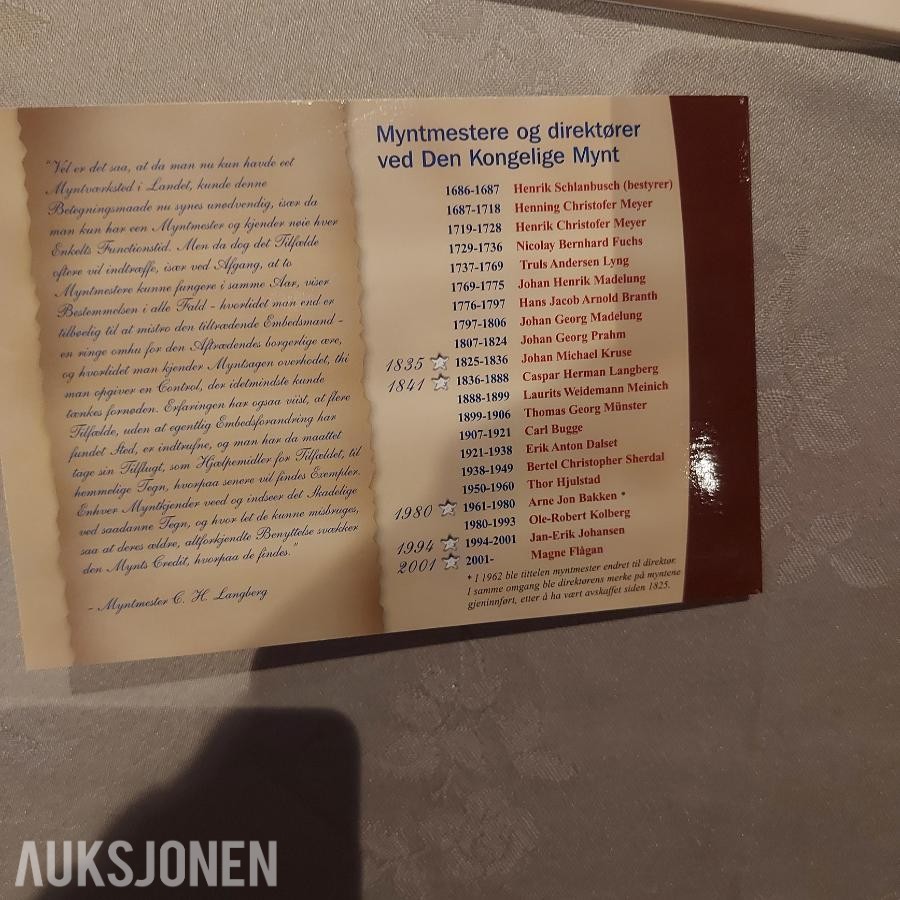 "Vel er det saa, at da man nu kun havde eet
Myntværksted i Landet, kunde denne
Betegningsmaade nu synes unedvendig, især da
man kun har een Myntmester og kjender neie hver
Enkelts Functionstid. Men da dog det Tilfælde
oftere vil indtræffe, især ved Afgang, at to
Myntmestere kunne fungere i samme Aar, viser
Bestemmelsen i alle Fald - hvorlidet man end er
tilbeelig til at mistro den tiltrædende Embedsmand -
en ringe omhu for den Aftrædendes borgerlige ære,
og hvorlidet man kjender Myntsagen overhodet, thi
man opgiver en Control, der idetmindste kunde
tænkes forneden. Erfaringen har ogsaa viist, at flere
Tilfælde, uden at egentlig Embedsforandring har
fundet Sted, er indtrufne, og man har da maattet
tage sin Tilflugt, som Hjælpemidler for Tilfældet, til
hemmelige Tegn, hvorpaa senere vil findes Exempler.
Enhver Myntkjender veed og indseer det Skadelige
ved saadanne Tegn, og hvor let de kunne misbruges,
saa at deres ældre, altforkjendte Benyttelse svækker
den Mynts Credit, hvorpaa de findes."
- Myntmester C. H. Langberg
Myntmestere og direktører
ved Den Kongelige Mynt
1686-1687 Henrik Schlanbusch (bestyrer)
1687-1718 Henning Christofer Meyer
1719-1728 Henrik Christofer Meyer
1729-1736 Nicolay Bernhard Fuchs
1737-1769 Truls Andersen Lyng
1769-1775 Johan Henrik Madelung
1776-1797 Hans Jacob Arnold Branth
1797-1806 Johan Georg Madelung
1807-1824 Johan Georg Prahm
1835 1825-1836 Johan Michael Kruse
1841 1836-1888 Caspar Herman Langberg
1888-1899 Laurits Weidemann Meinich
1899-1906 Thomas Georg Münster
1907-1921 Carl Bugge
1921-1938 Erik Anton Dalset
1938-1949 Bertel Christopher Sherdal
1950-1960 Thor Hjulstad
1980 1961-1980 Arne Jon Bakken *
1980-1993 Ole-Robert Kolberg
1994 1994-2001 Jan-Erik Johansen
2001 2001- Magne Flågan
* I 1962 ble tittelen myntmester endret til direktør.
I samme omgang ble direktørens merke på myntene
gjeninnført, etter å ha vært avskaffet siden 1825.
AUKSJONEN